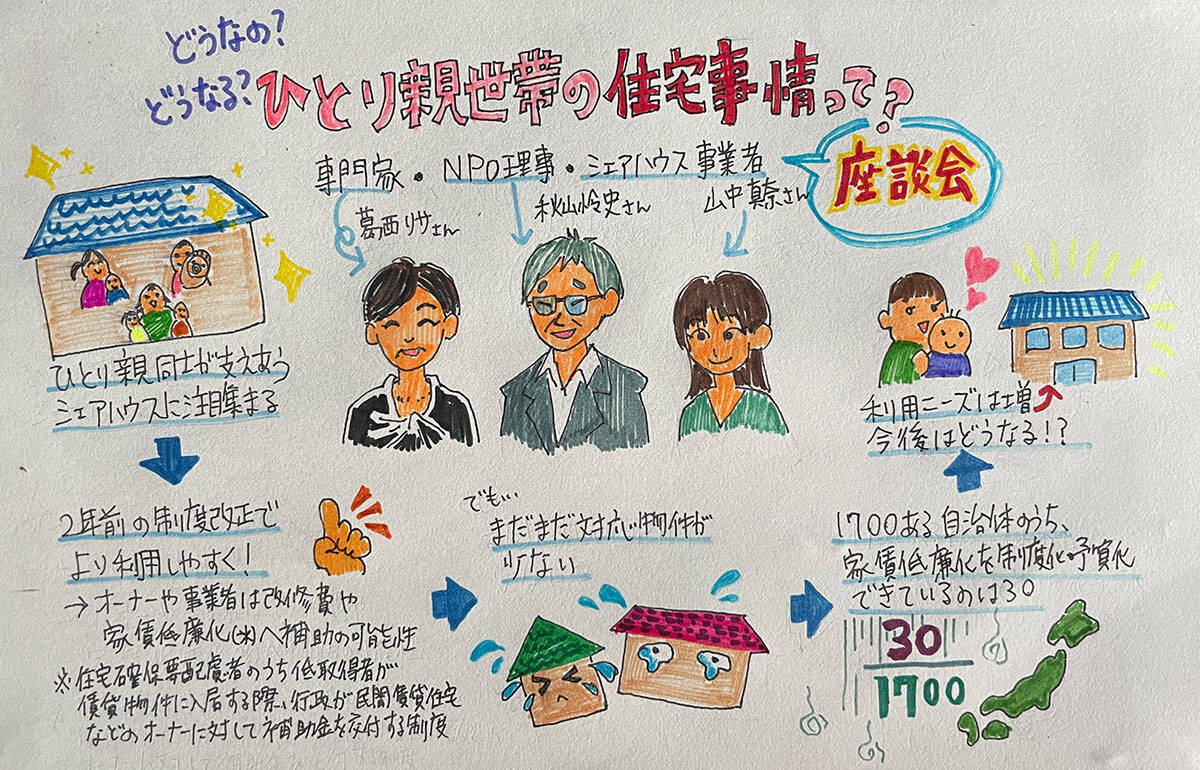 どうなの?
どうなる?
ひとり親世帯の住宅事情って?
専門家・NPO理事・シェアハウス事業者
座談会
葛西リサさん
秋山怜史さん
山中真奈さん
ひとり親同士が支えあう
シェアハウスに注目集まる
2年前の制度改正で
より利用しやすく!
→オーナーや事業者は改修費や
家賃低廉化(※)へ補助の可能性
※住宅確保要配慮者のうち低取得者が
賃貸物件に入居する際、行政が民間賃貸住宅
などのオーナーに対して補助金を交付する制度
でも…
まだまだ対応物件が
少ない
1700ある自治体のうち、
家賃低廉化を制度化予算化
できているのは30
30
1700
利用ニーズは増
今後はどうなる!?